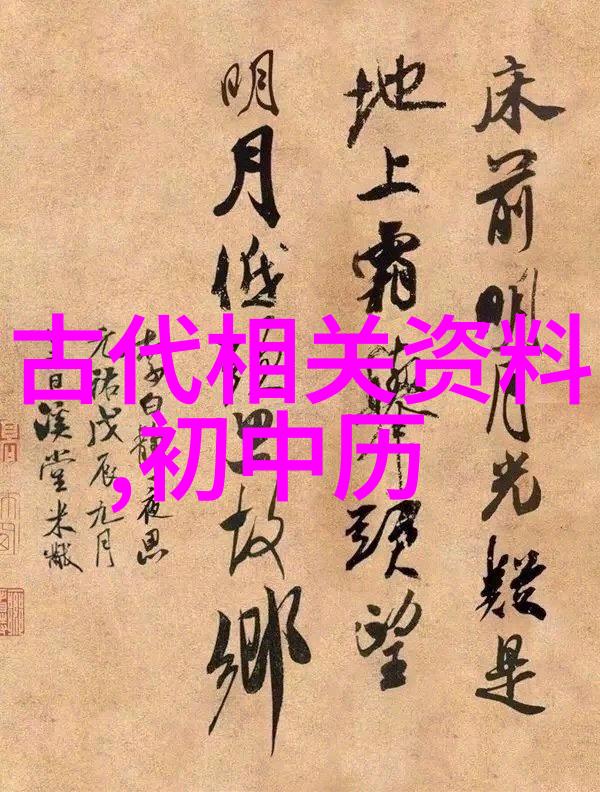 床前明月光疑是
地上霜舉頭望
明月低頭思故鄉
李白靜夜思
元祐戊辰九月
日溪堂米黻
古代相关资料
,初中历